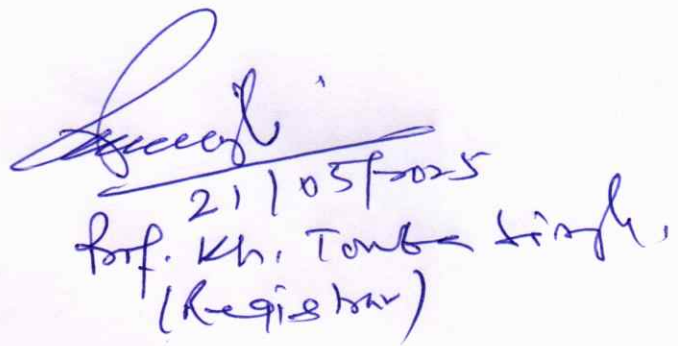 21/05/2025
Prof. Kh. Tomba Singh.
(Registrar)